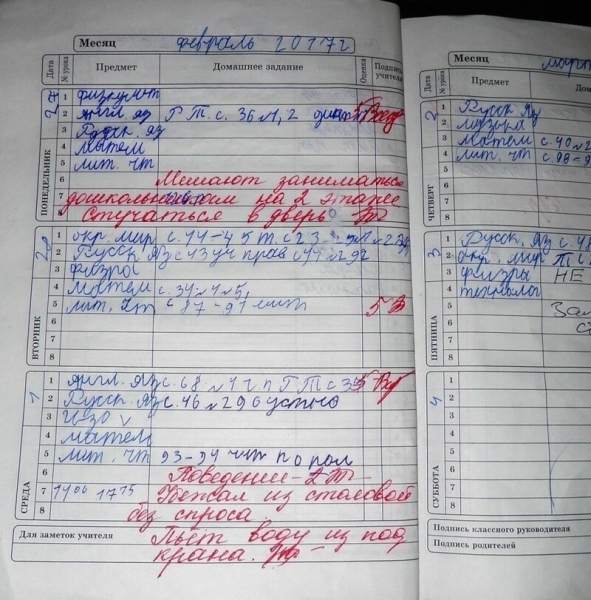 Месяц февраль 2017г
Дата № урока Предмет Домашнее задание Оценка Подпись учителя
ПОНЕДЕЛЬНИК
1 физкульт
2 англ. яз РТ с. 36 №1,2 5
3 Русск. яз
4 матем
5 лит. чт
6 Мешают заниматься
7 дошкольникам на 2 этаже
8 Стучаться в дверь
28
ВТОРНИК
1 окр. мир
2 Русск. яз с 43 уч прав с 44 № 92
3 физра
4 матем с. 34 №4,5,
5 лит. чт с 87-91 чит 5
6
7
8
1
СРЕДА
1 англ. яз с. 68 №1
2 Русск. яз с. 46 №296 устно
3 ИЗО
4 матем
5 лит. чт 93-94 чит по рол
6 Поведение - 2
7 14 00 17 15 Убежал из столовой
8 без спроса.
Для заметок учителя Пьет воду из под
крана.
Месяц март
Дата № урока Предмет
2
ЧЕТВЕРГ
1 Русск. яз
2 музыка
3 матем с. 40 №2
4 лит. чт с. 98-9
5
6
7
8
3
ПЯТНИЦА
1 Русск. яз с. 48
2 окр. мир Т с.
3 физры НЕ
4 технолог
5
6
7
8
4
СУББОТА
1
2
3
4
5
6
7
8
Подпись классного руководителя
Подпись родителей